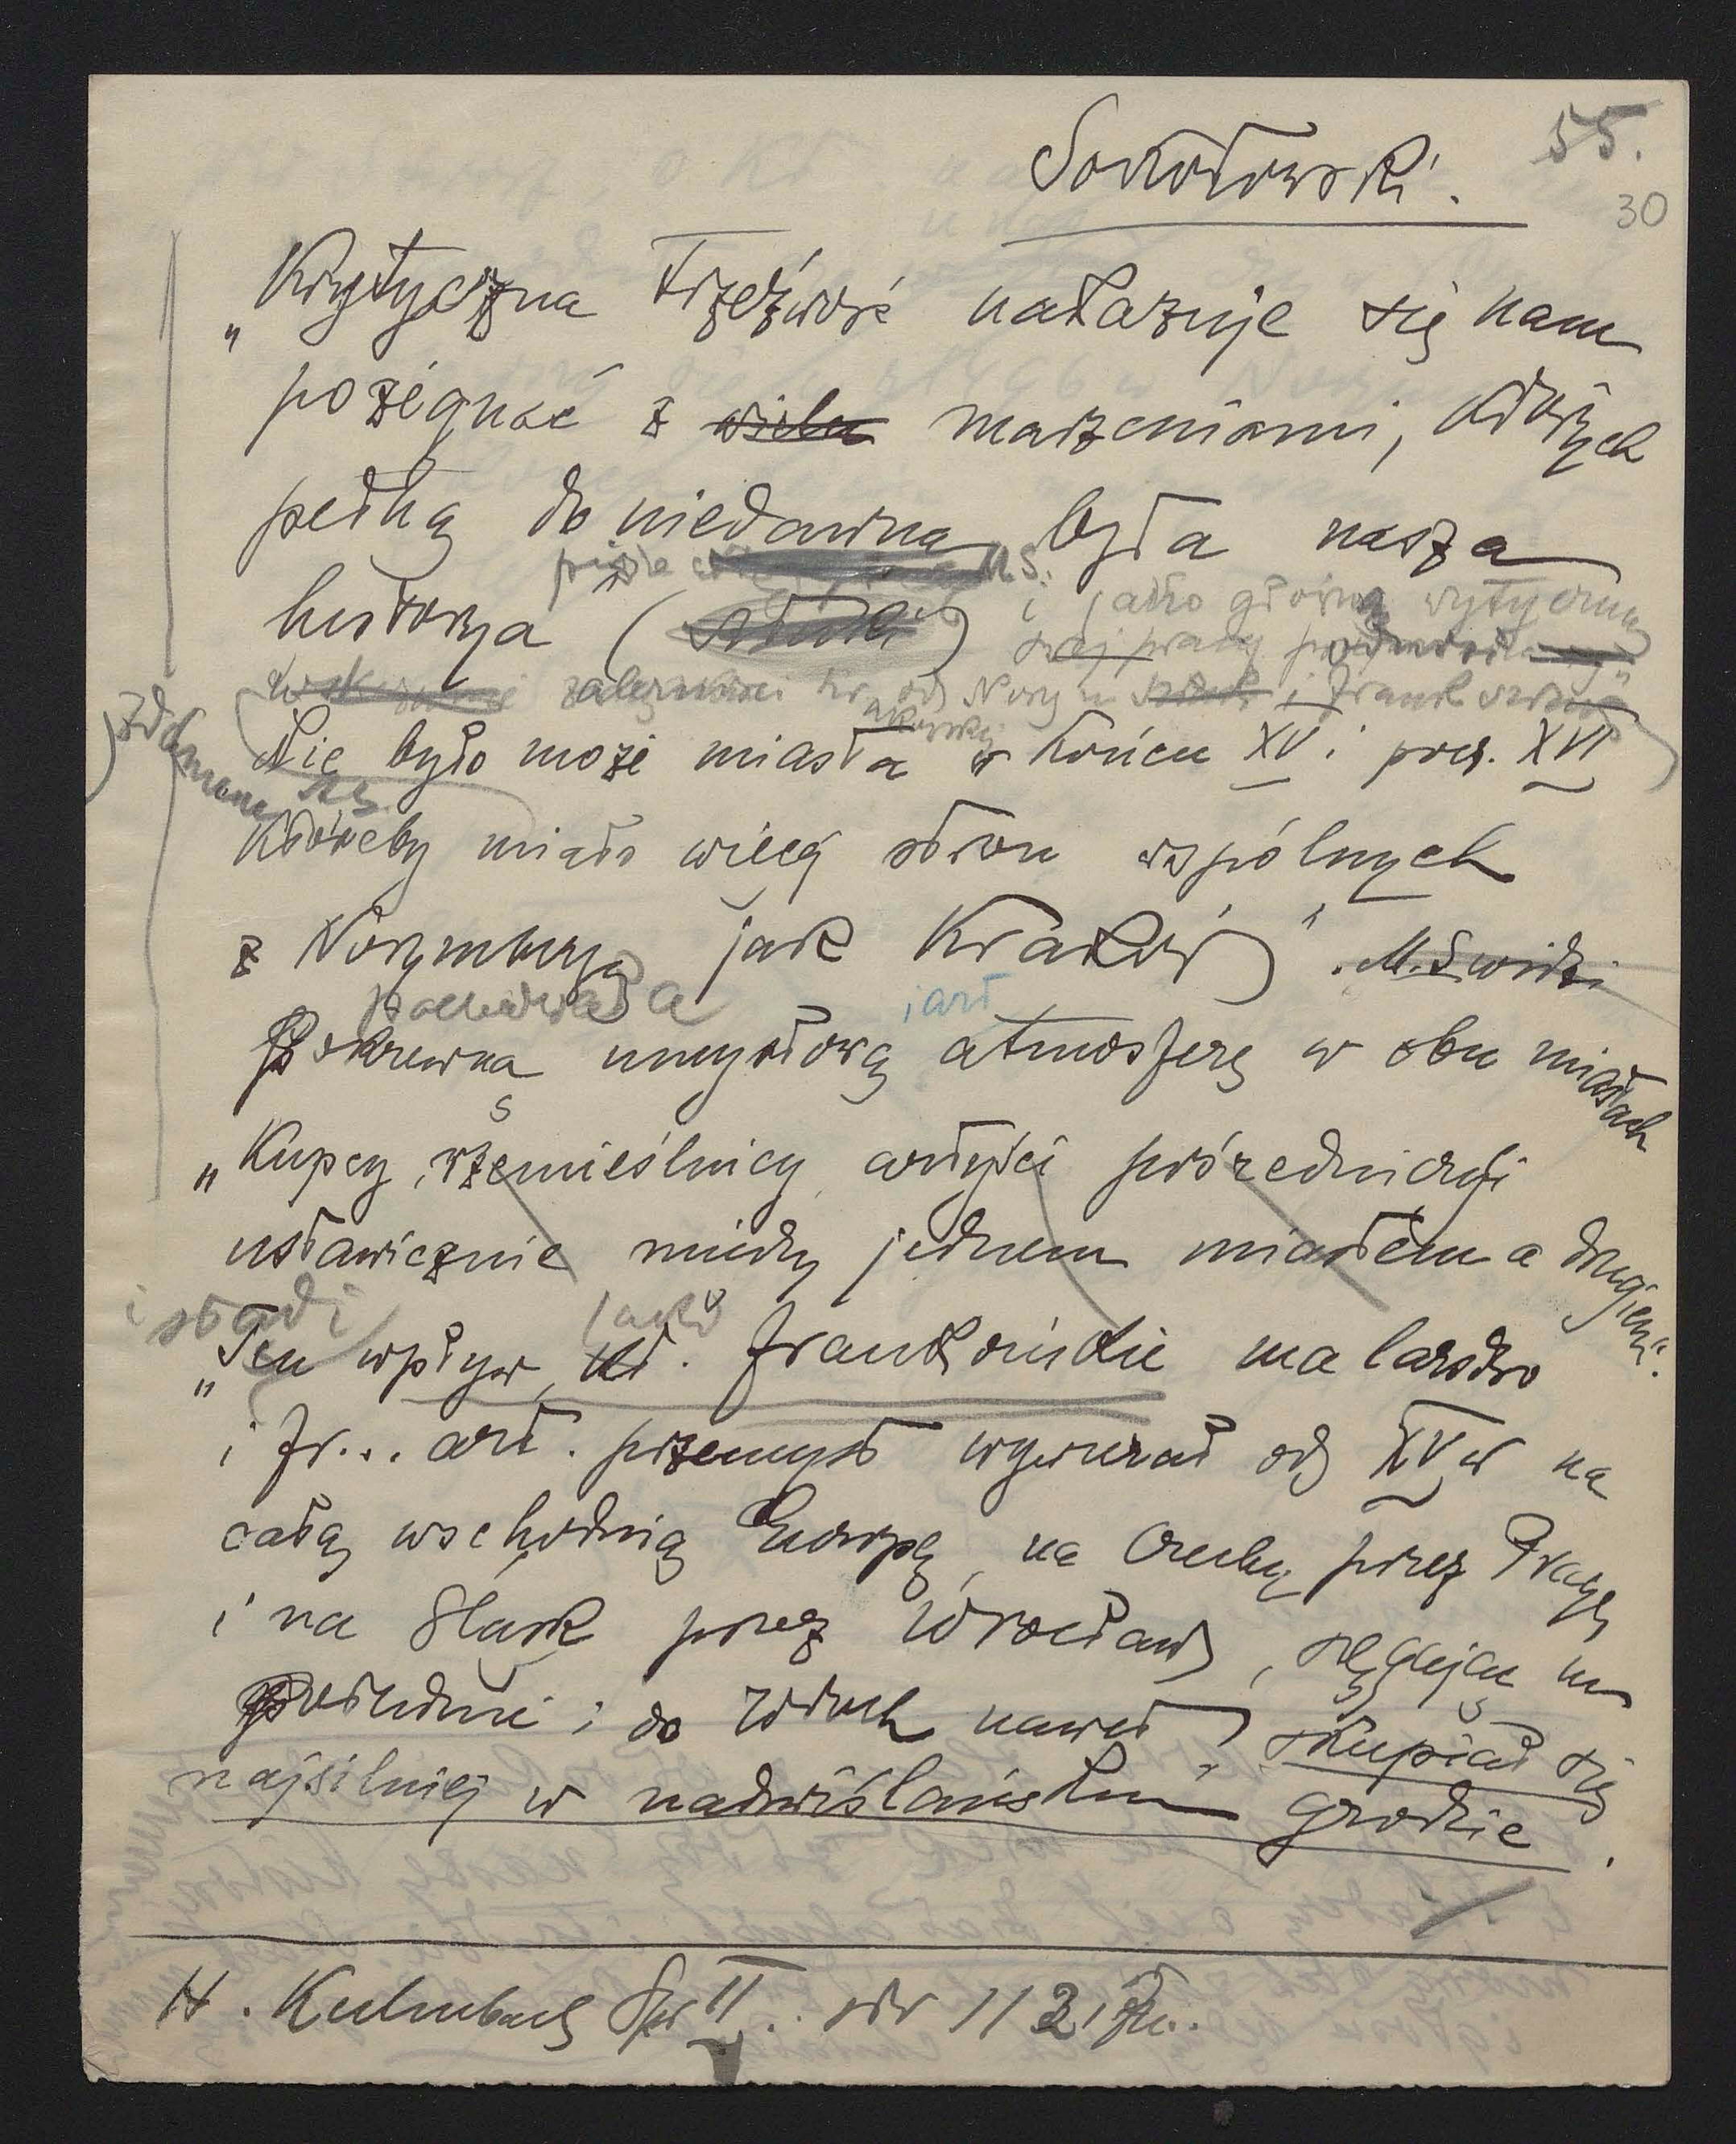 55.
Sokołowski.
30
„Krytyczna trzeźwość nakazuje się nam
pożegnać z wielu marzeniami, których
pełną do niedawna była nasza
pisze M.S.
historya (sztuki) i jako główną wytyczną
swej pracy
zależności od Norym i Frank
Nie było może miasta w końcu XV i pocz. XVI
któreby miało więcej stron wspólnych
z Norymbergą jak Kraków". M.S. widzi
i art
Pokrewną umysłową atmosferę w obu miastach
„Kupcy, rzemieślnicy, artyści pośredniczyli
ustawicznie między jednem miastem a drugiem".
i stąd jako
„Ten wpływ, kt. frankońskie malarstwo
i fr... art. przemysł wywierał od XV w na
całą wschodnią Europę, na Czechy przez Pragę
i na Śląsk przez Wrocław, sięgając na
południe i do Włoch nawet, skupiał się
najsilniej w nadwiślańskim grodzie.
H. Kulmbach Spr II. str 113